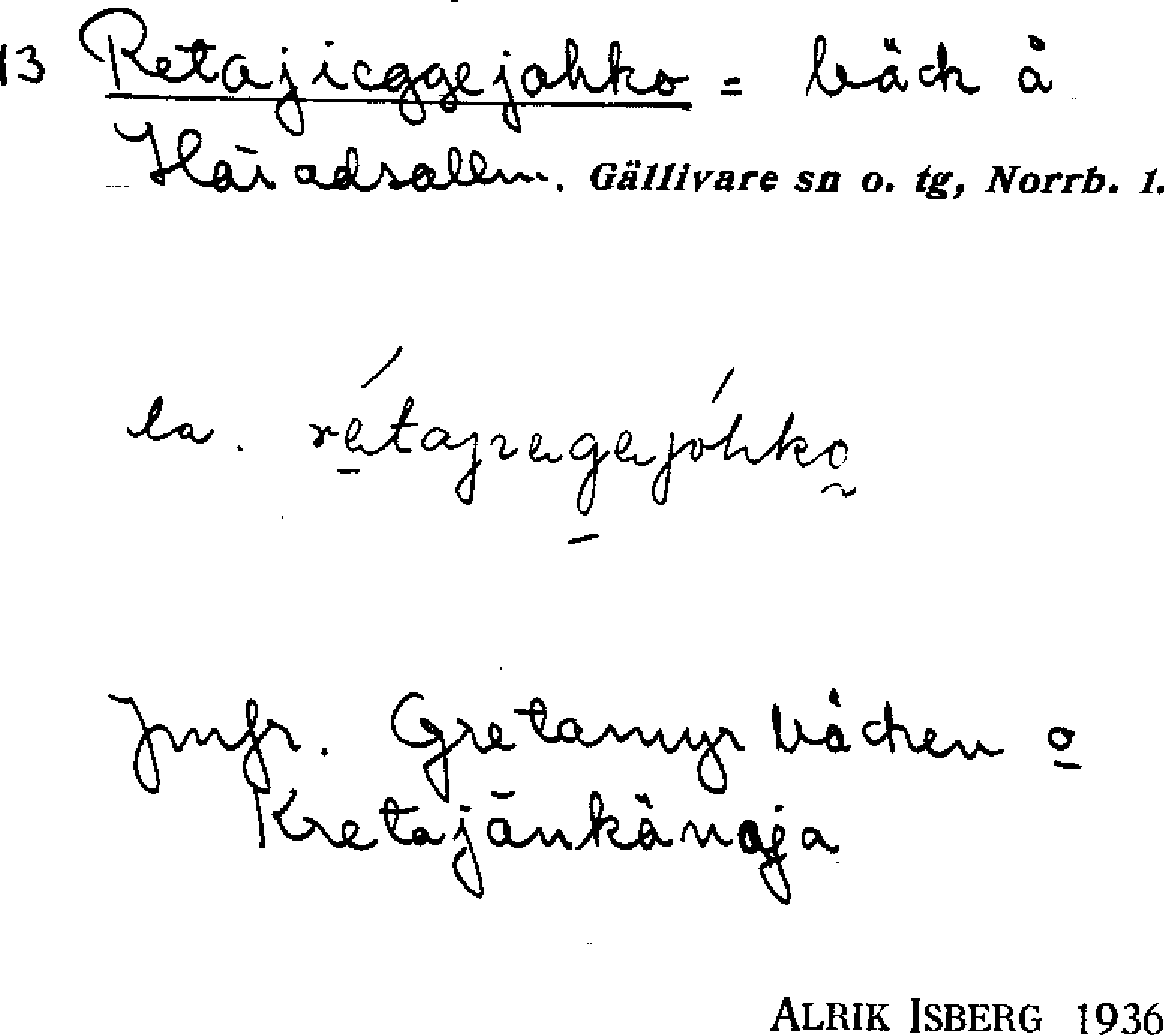 13 Retajieggejohko = bäck å
Häradsallm. Gällivare sn o. tg, Norrb. l.
la. rétajregejóhko
Jmfr. Gretamyrbäcken o
Kretajänkänoja
ALRIK ISBERG 1936